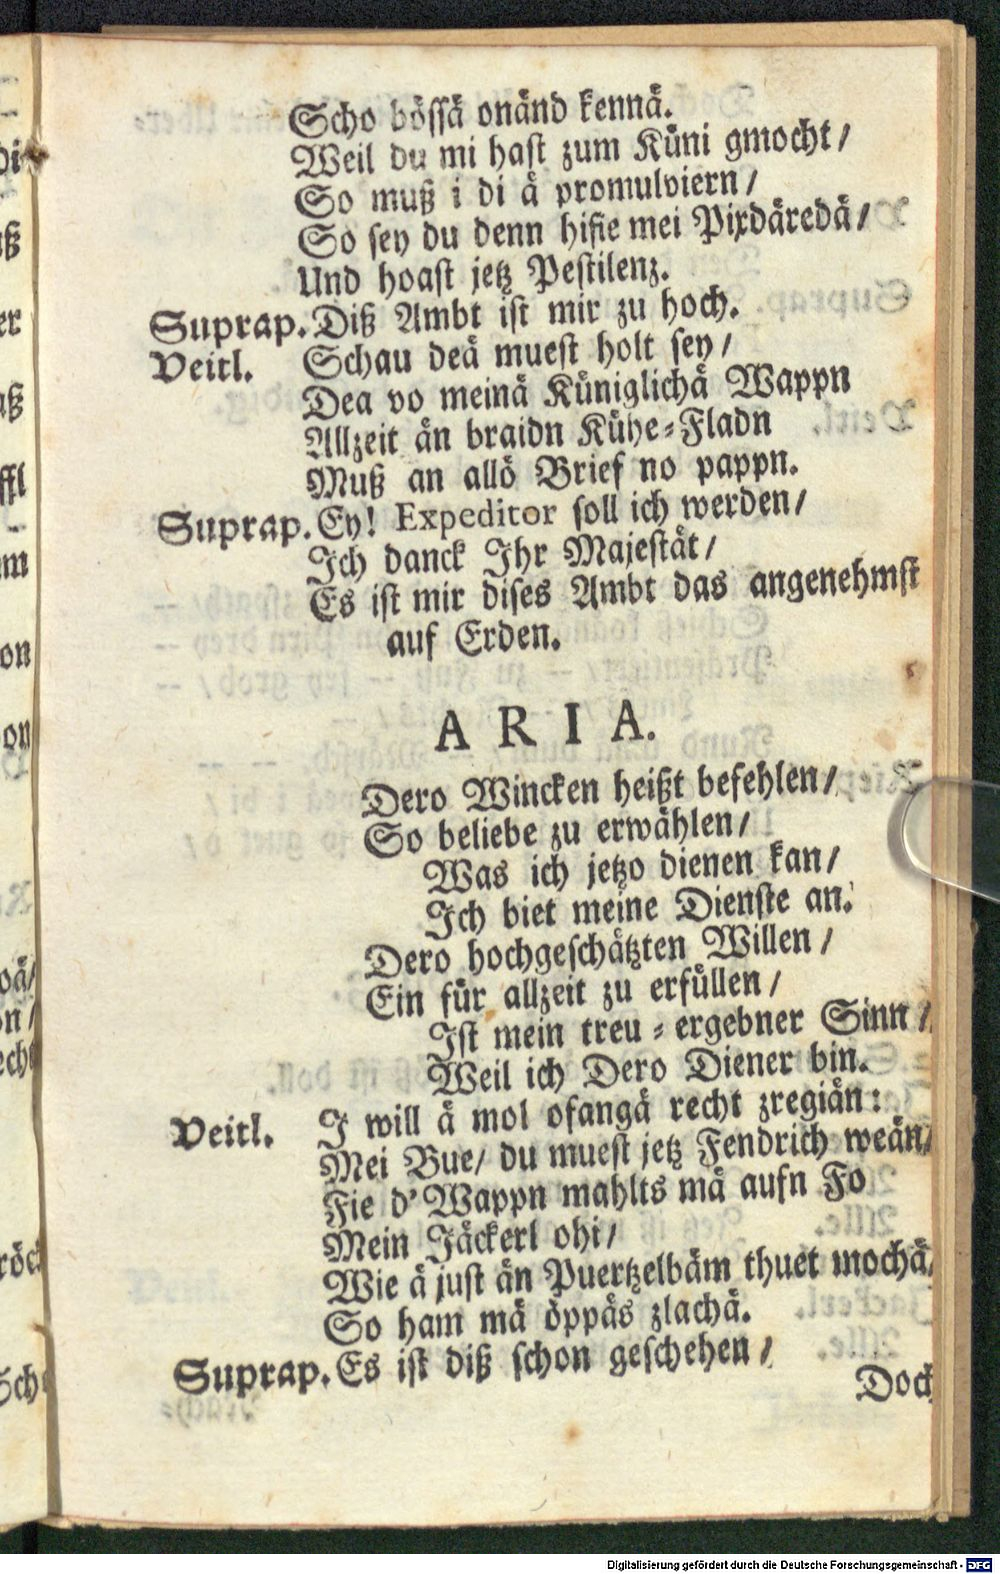 Scho bössä onänd kennä.
Weil du mi hast zum Küni gmocht/
So muß i di ä promulviern/
So sey du denn hifie mei Pixdäredä/
Und hoast jetz Pestilenz.
Suprap. Diß Ambt ist mir zu hoch.
Veitl. Schau deä muest holt sey/
Dea vo meinä Küniglichä Wappn
Allzeit än braidn Kühe-Fladn
Muß an allö Brief no pappn.
Suprap. Ey! Expeditor soll ich werden/
Ich danck Ihr Majestät/
Es ist mir dises Ambt das angenehmst
auf Erden.
ARIA.
Dero Wincken heißt befehlen/
So beliebe zu erwählen/
Was ich jetzo dienen kan/
Ich biet meine Dienste an.
Dero hochgeschätzten Willen/
Ein für allzeit zu erfüllen/
Ist mein treu-ergebner Sinn/
Weil ich Dero Diener bin.
Veitl. I will ä mol ofangä recht zregiän:
Mei Bue/ du muest jetz Fendrich weän/
Fie d'Wappn mahlts mä aufn Fo
Mein Jäckerl ohi/
Wie ä just än Puertzelbäm thuet mochä/
So ham mä öppäs zlachä.
Suprap. Es ist diß schon geschehen/
Doch